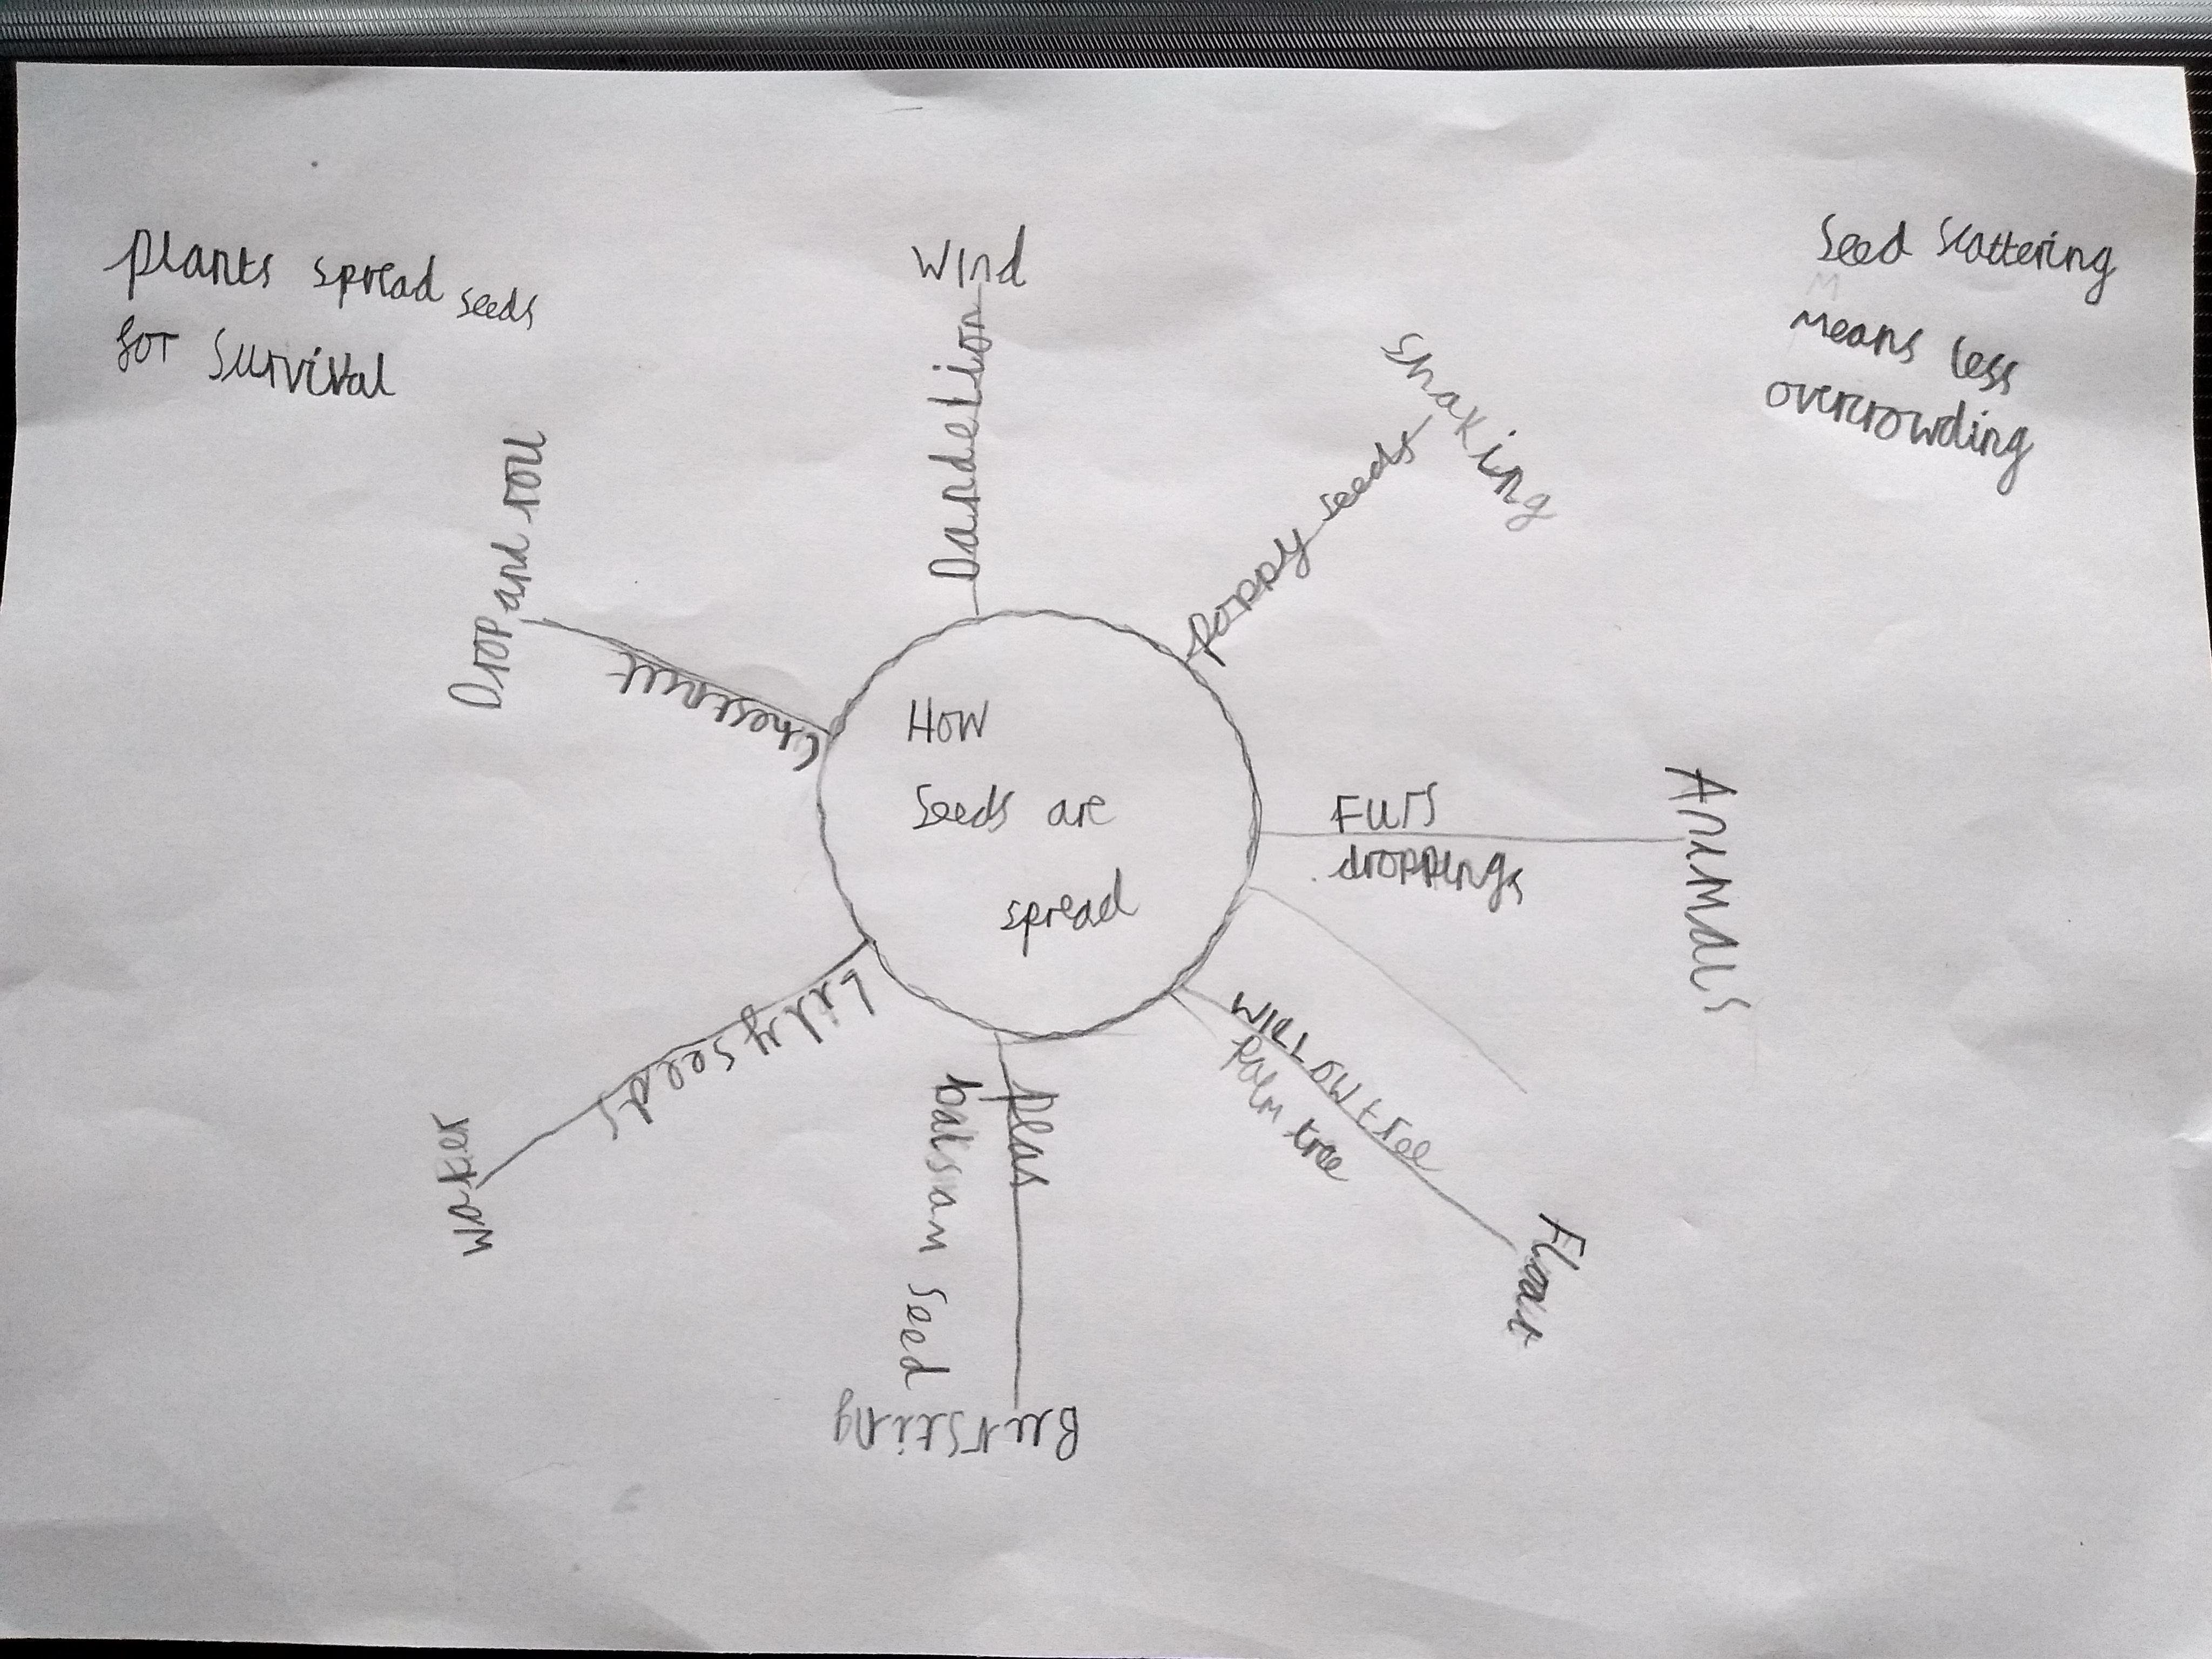 plants spread seeds
for survival
Wind
Dandelion
Seed scattering
means less
overcrowding
shaking
poppy seeds
Drop and roll
Chesetnut
How
Seeds are
spread
Furs
droppings
Animals
Willow tree
Palm tree
Float
Lily seeds
water
peas
balsam seed
Bursting